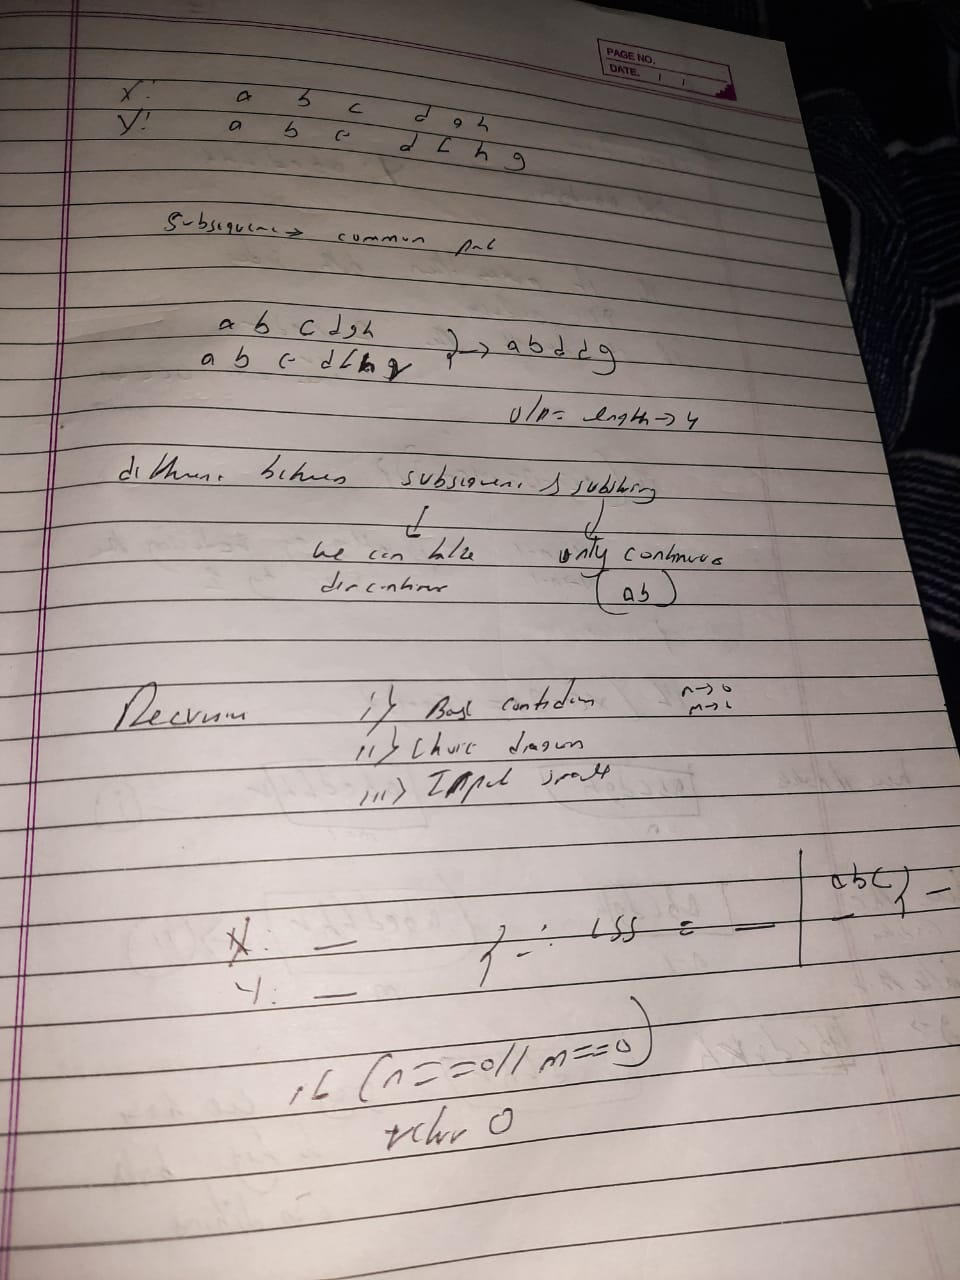 PAGE NO.
DATE. / /
X: a b c d g h
Y: a b e d f h g
Subsequence → common part
a b c d g h
a b e d f h g } → a b d g
O/P = length → 4
difference between subsequence & substring
we can take only continuous
discontinuous (ab)
Recursion i) Base condition n→0
m→
ii) Choice diagram
iii) Input small
X: —
Y: — } = —
abc } —
if (n==0 || m==0)
return 0